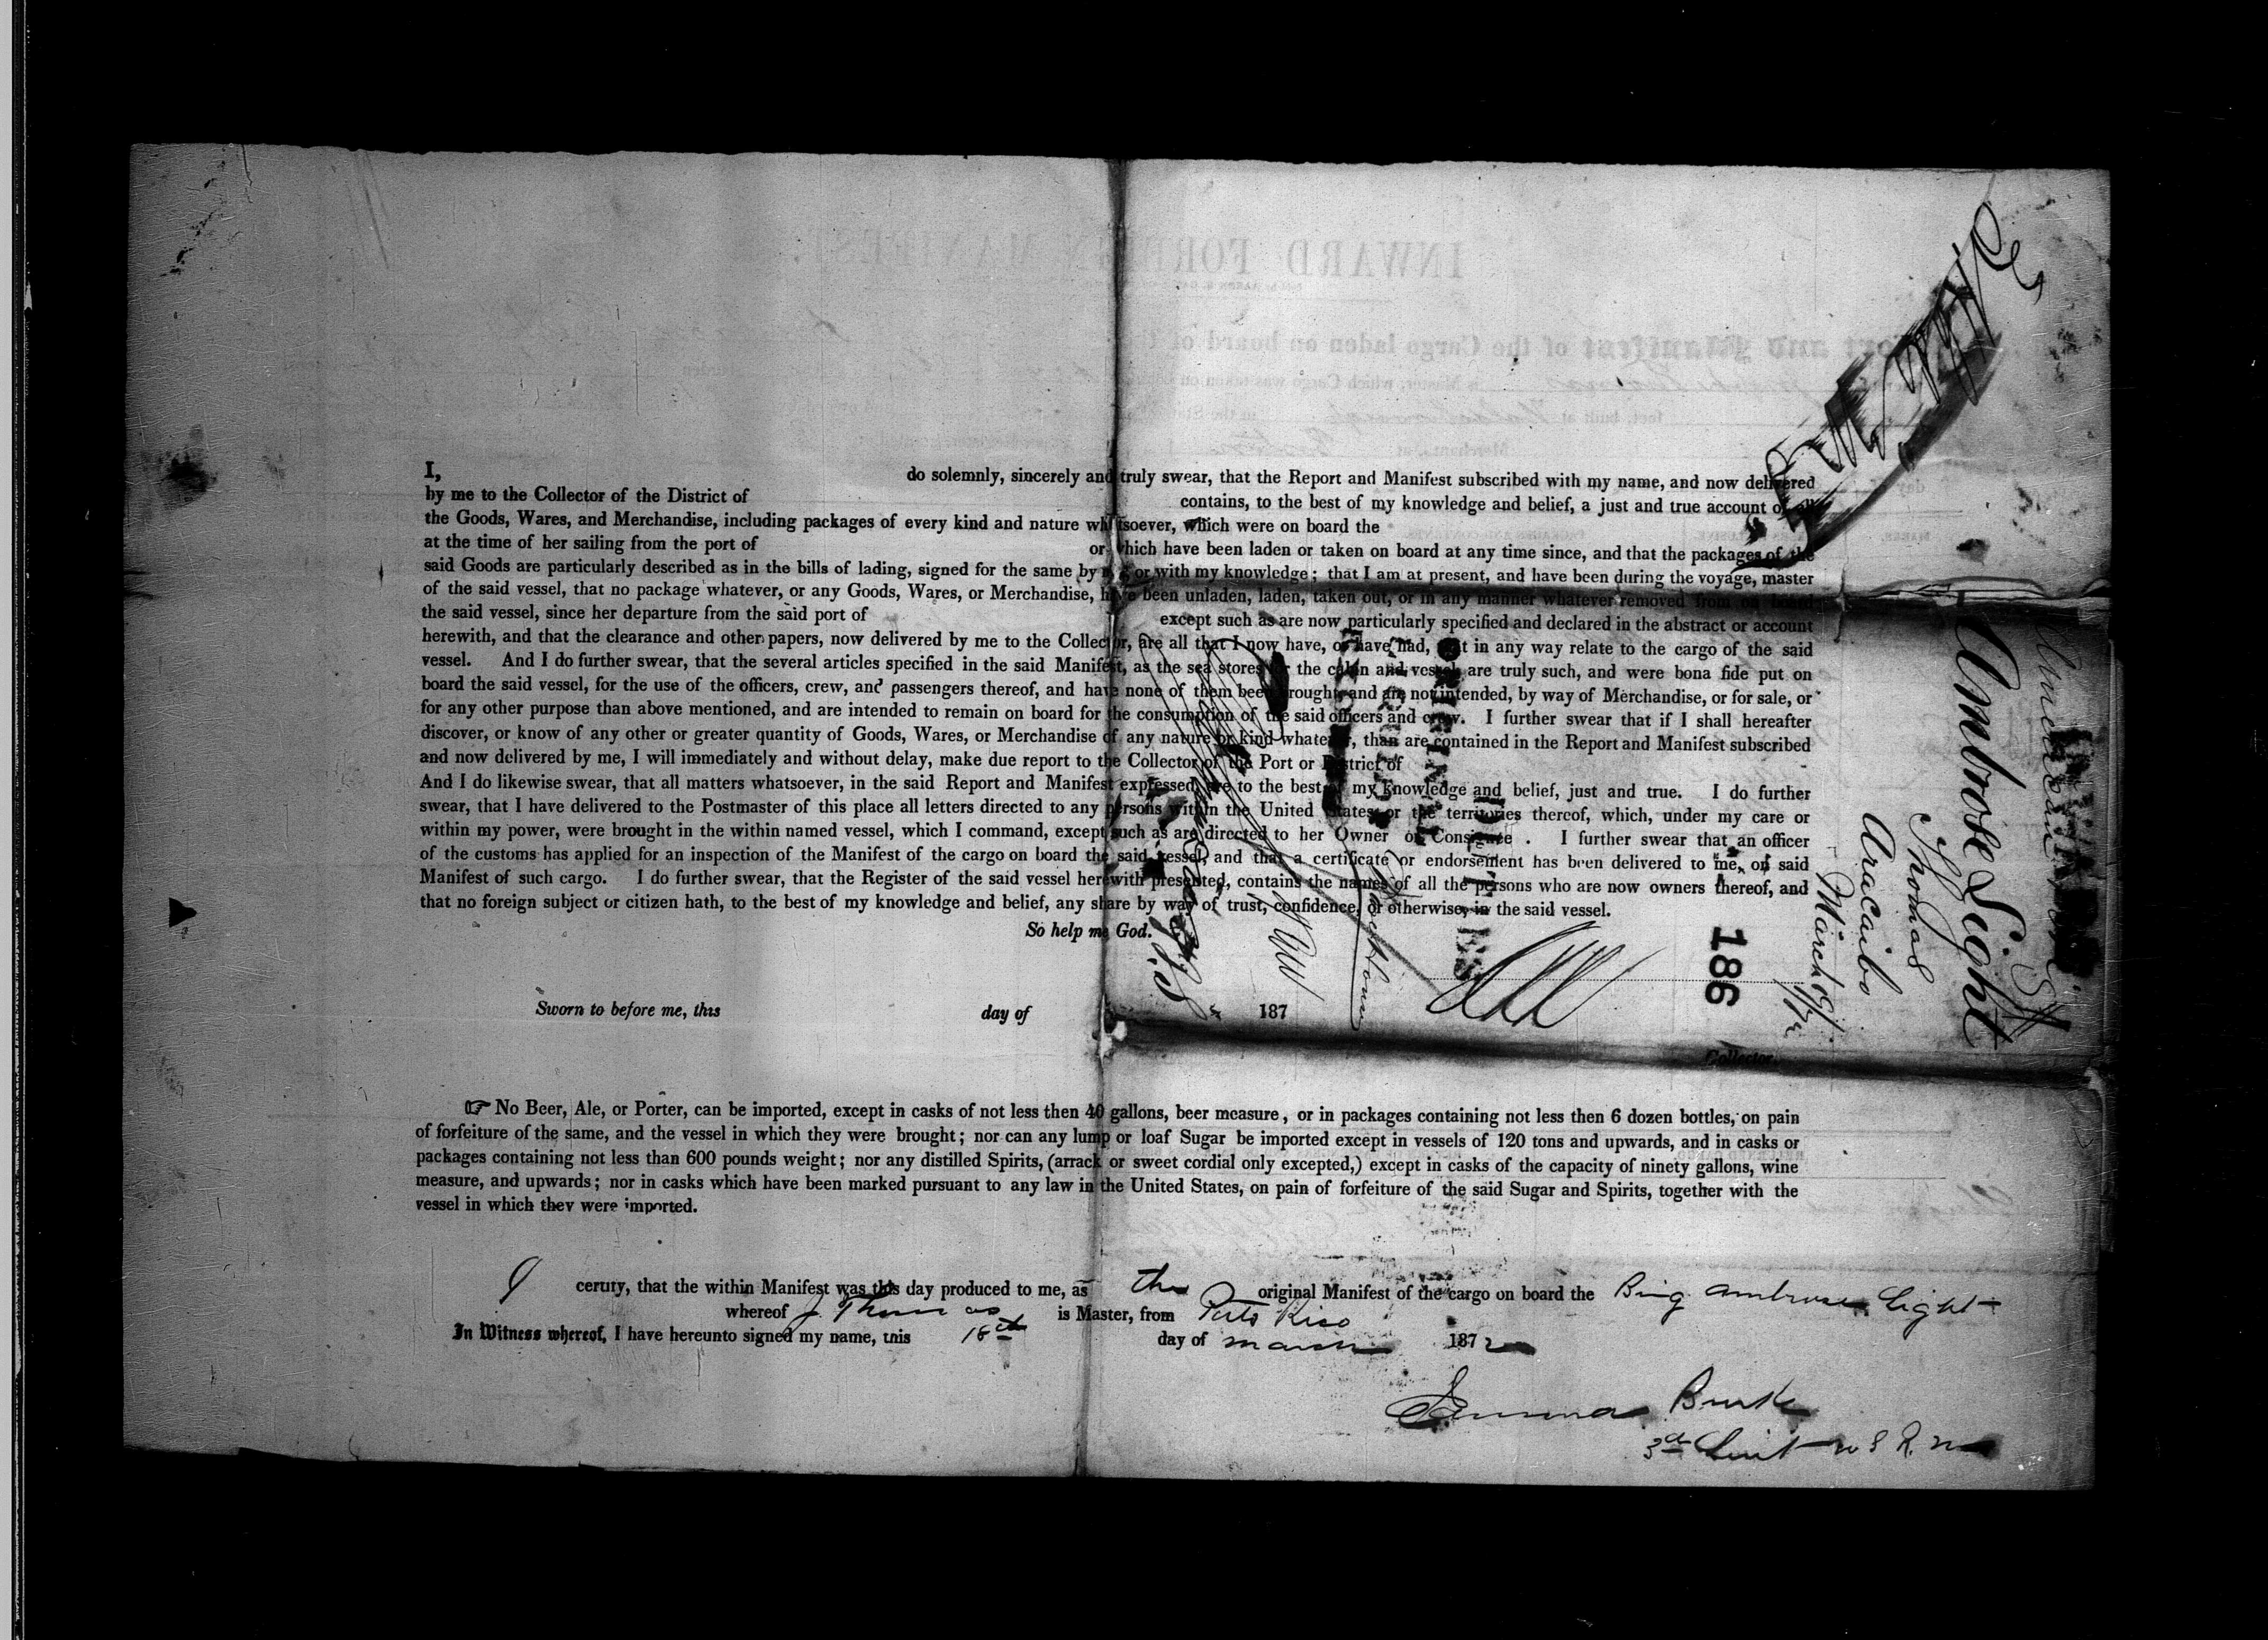 I, do solemnly, sincerely and truly swear, that the Report and Manifest subscribed with my name, and now delivered
by me to the Collector of the District of contains, to the best of my knowledge and belief, a just and true account of all
the Goods, Wares, and Merchandise, including packages of every kind and nature whatsoever, which were on board the
at the time of her sailing from the port of or which have been laden or taken on board at any time since, and that the packages of the
said Goods are particularly described as in the bills of lading, signed for the same by me or with my knowledge; that I am at present, and have been during the voyage, master
of the said vessel, that no package whatever, or any Goods, Wares, or Merchandise, have been unladen, laden, taken out, or in any manner whatever removed from on board
the said vessel, since her departure from the said port of except such as are now particularly specified and declared in the abstract or account
herewith, and that the clearance and other papers, now delivered by me to the Collector, are all that I now have, or have had, that in any way relate to the cargo of the said
vessel. And I do further swear, that the several articles specified in the said Manifest, as the sea stores for the cabin and vessel are truly such, and were bona fide put on
board the said vessel, for the use of the officers, crew, and passengers thereof, and have none of them been brought and are not intended, by way of Merchandise, or for sale, or
for any other purpose than above mentioned, and are intended to remain on board for the consumption of the said officers and crew. I further swear that if I shall hereafter
discover, or know of any other or greater quantity of Goods, Wares, or Merchandise of any nature or kind whatever, than are contained in the Report and Manifest subscribed
and now delivered by me, I will immediately and without delay, make due report to the Collector of the Port or District of
And I do likewise swear, that all matters whatsoever, in the said Report and Manifest expressed, are to the best of my knowledge and belief, just and true. I do further
swear, that I have delivered to the Postmaster of this place all letters directed to any persons within the United States or the territories thereof, which, under my care or
within my power, were brought in the within named vessel, which I command, except such as are directed to her Owner or Consignee . I further swear that an officer
of the customs has applied for an inspection of the Manifest of the cargo on board the said vessel, and that a certificate or endorsement has been delivered to me, on said
Manifest of such cargo. I do further swear, that the Register of the said vessel herewith presented, contains the names of all the persons who are now owners thereof, and
that no foreign subject or citizen hath, to the best of my knowledge and belief, any share by way of trust, confidence, or otherwise, in the said vessel.
So help me God.
Sworn to before me, this day of 187
Collector.
Ambrose Light
Thomas
Aracaibo
March
186
☞ No Beer, Ale, or Porter, can be imported, except in casks of not less then 40 gallons, beer measure, or in packages containing not less then 6 dozen bottles, on pain
of forfeiture of the same, and the vessel in which they were brought; nor can any lump or loaf Sugar be imported except in vessels of 120 tons and upwards, and in casks or
packages containing not less than 600 pounds weight; nor any distilled Spirits, (arrack or sweet cordial only excepted,) except in casks of the capacity of ninety gallons, wine
measure, and upwards; nor in casks which have been marked pursuant to any law in the United States, on pain of forfeiture of the said Sugar and Spirits, together with the
vessel in which they were imported.
I certify, that the within Manifest was this day produced to me, as the original Manifest of the cargo on board the Brig Ambrose Light
whereof J. Thomas is Master, from Puto Rico
In Witness whereof, I have hereunto signed my name, this 18th day of March 1872
Burke
3d Lieut U S R. M